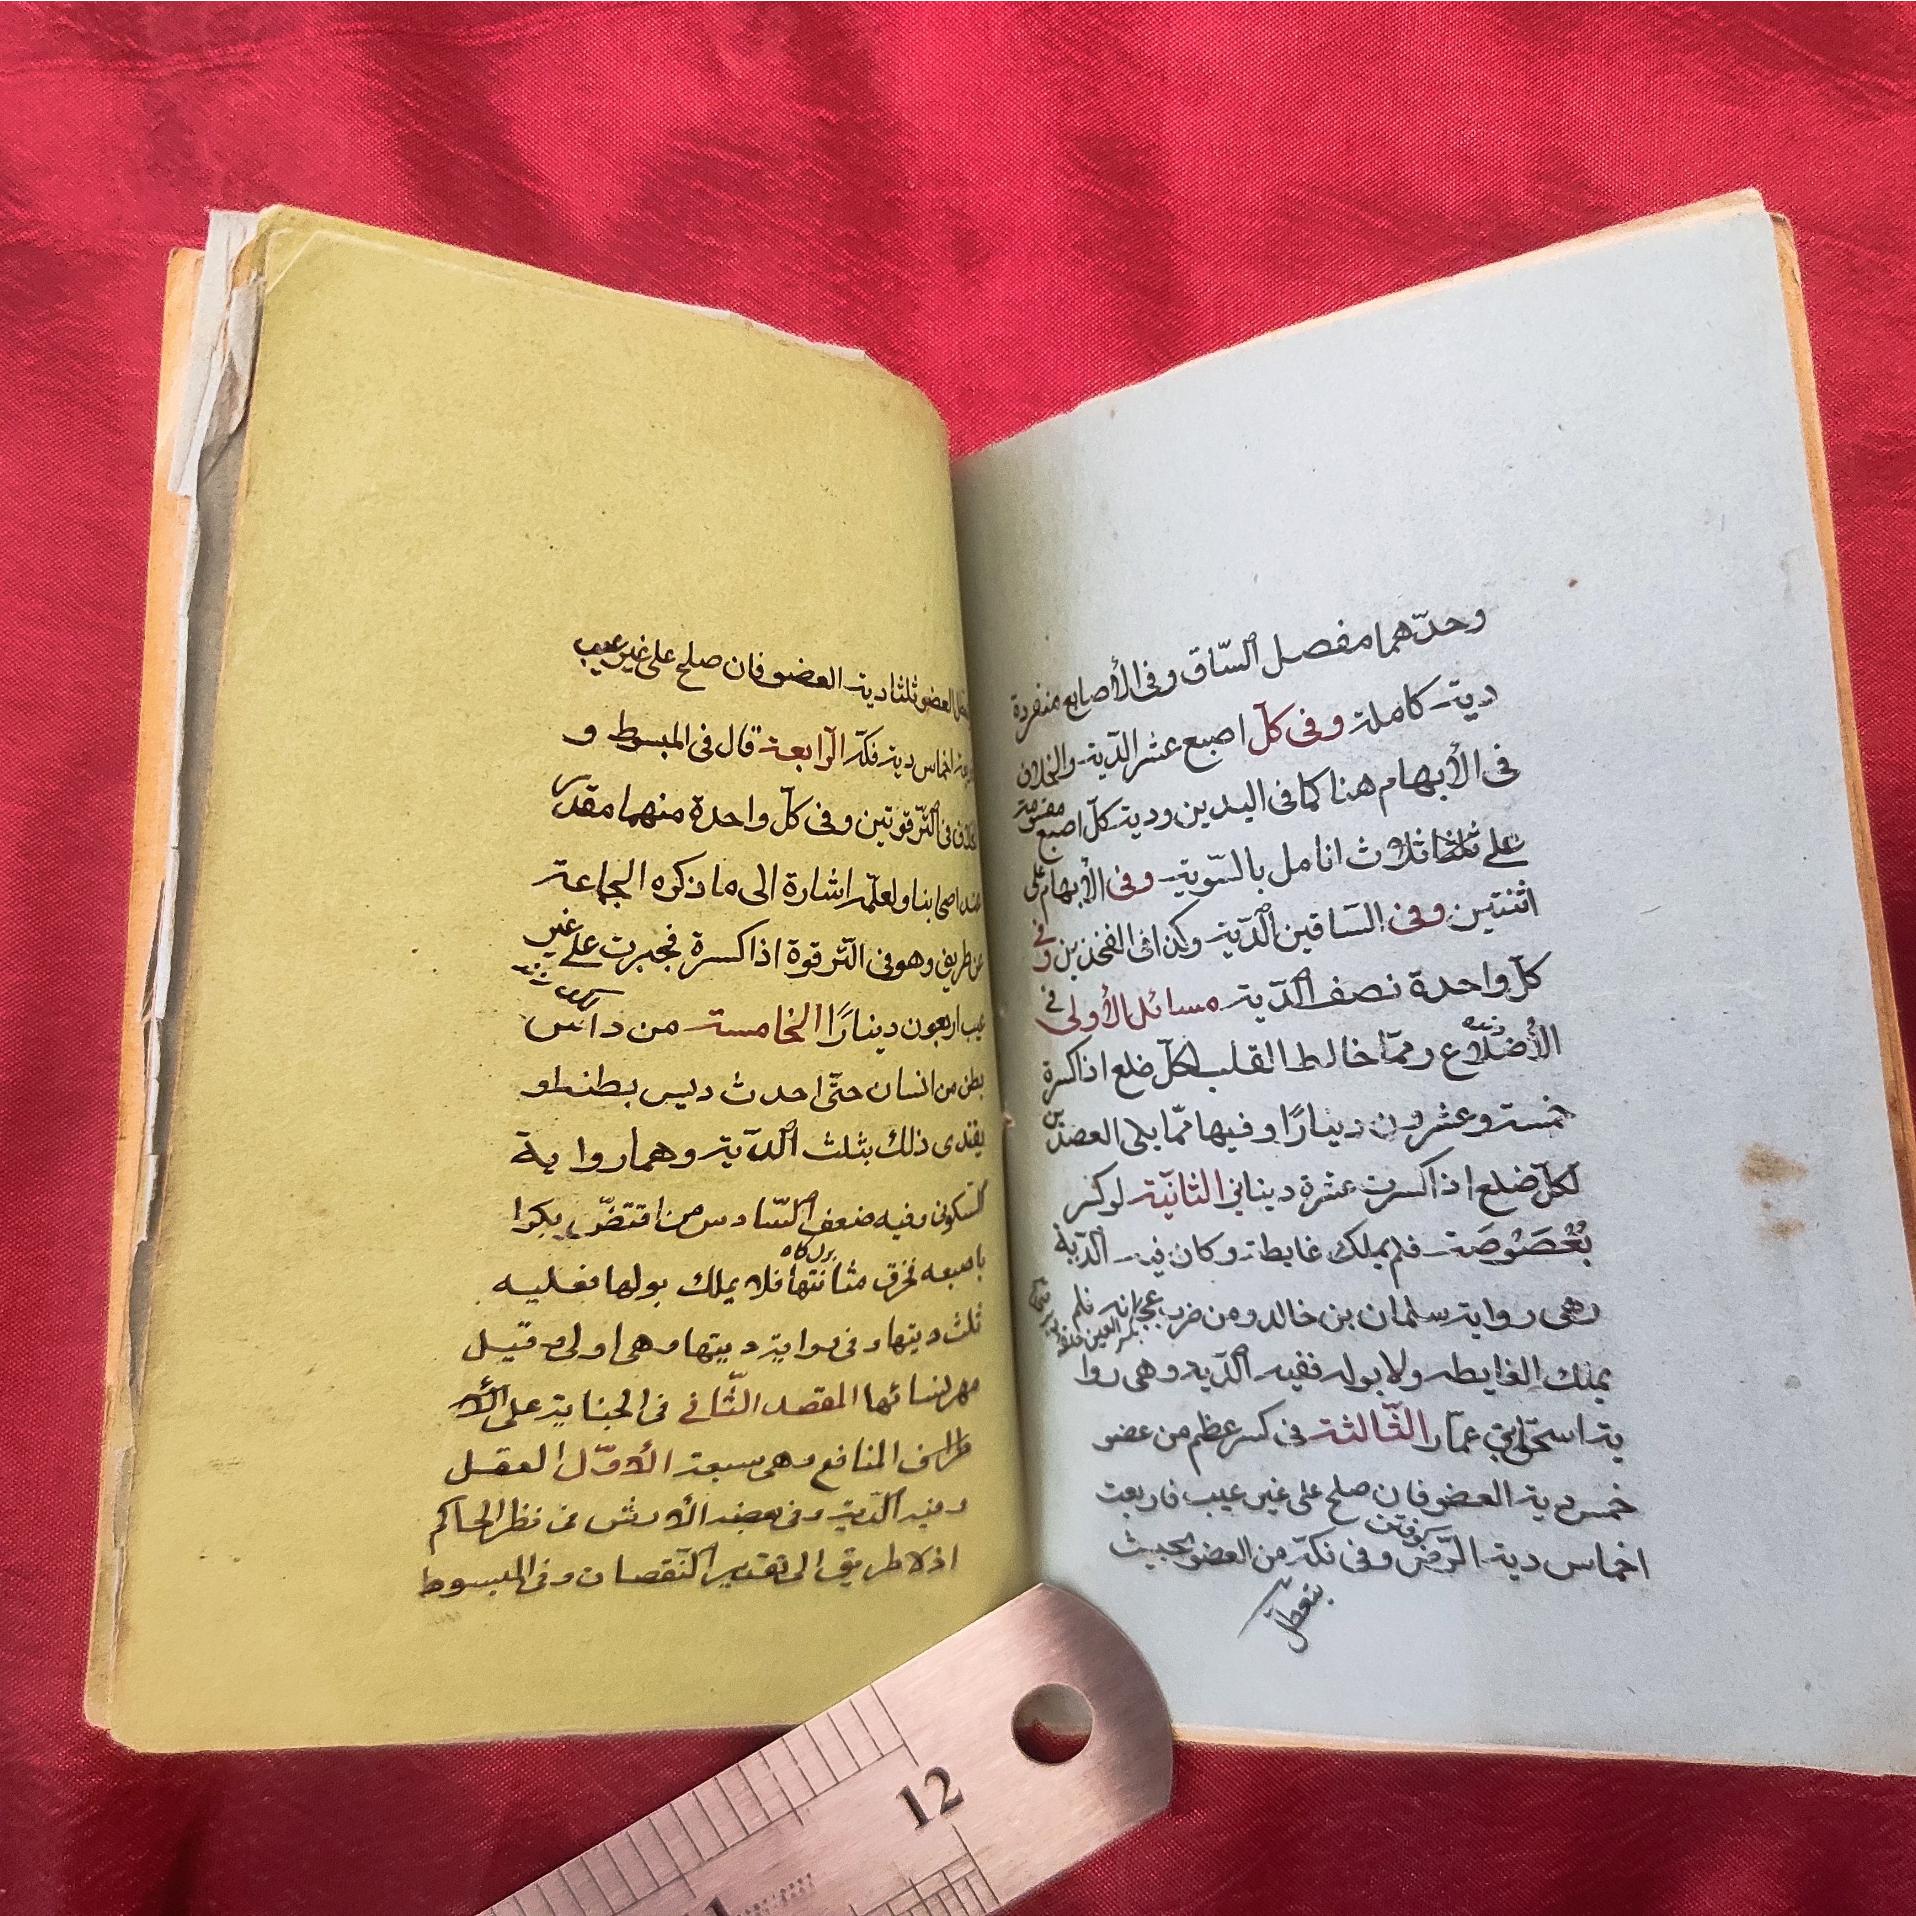 وحدّهما مفصل السّاق وفى الأصابع منفردة
دية كاملة وفى كلّ اصبع عشر الدّية والخلاف
فى الأبهام هنا كما فى اليدين ودية كلّ اصبع مقسومة
على ثلاث انامل بالسّوية وفى الأبهام على
اثنتين وفى السّاقين الدّية وكذا فى الفخذين وفى
كلّ واحدة نصف الدّية مسائل الأولى فى
الأضلاع ممّا خالط القلب لكلّ ضلع اذا كسرة
خمسة وعشرون دينارًا وفيها ممّا يلى العضدين
لكلّ ضلع اذا كسرت عشرة دنانير الثانية لو كسر
بُعْصُوصَة فلم يملك غايطة وكان فيه الدّية
وهى رواية سلمان بن خالد ومن ضرب عجانه فلم
يملك الغايطه ولا بوله ففيه الدّيه وهى روا
ية اسحاق بن عمّار الثّالثة فى كسر عظم من عضو
خمس دية العضو فان صلح على غير عيب فاربعة
اخماس دية الرّضّ وفى فكّه من العضو بحيث
يتعطّل
العضو ثلثا دية العضو فان صلح على غير عيب
اخماس دية فكّه الرّابعة قال فى المبسوط و
فى الترّقوتين وفى كلّ واحدة منهما مقدّر
عند اصحابنا ولعلّه اشارة الى ما ذكره الجماعة
عن ظريف وهو فى التّرقوة اذا كسرة فجبرت على غير
عيب اربعون دينارًا الخامسة من داس
بطن من انسان حتّى احدث ديس بطنه او
يفتدى ذلك بثلث الدّية وهما رواية
السّكونى وفيه ضعف السّادس من اقتضّ بكرا
باصبعه فخرق مثانتها فلا يملك بولها فعليه
ثلث ديتها وفى رواية ديتها وهى اولى وقيل
مهر نسائها المقصد الثّانى فى الجناية على الأ
طراف المنافع وهى سبعة الأوّل العقل
وفيه الدّية وفى بعضه الأرش فى نظر الحاكم
اذ لا طريق الى تقدير النّقصان وفى المبسوط
12